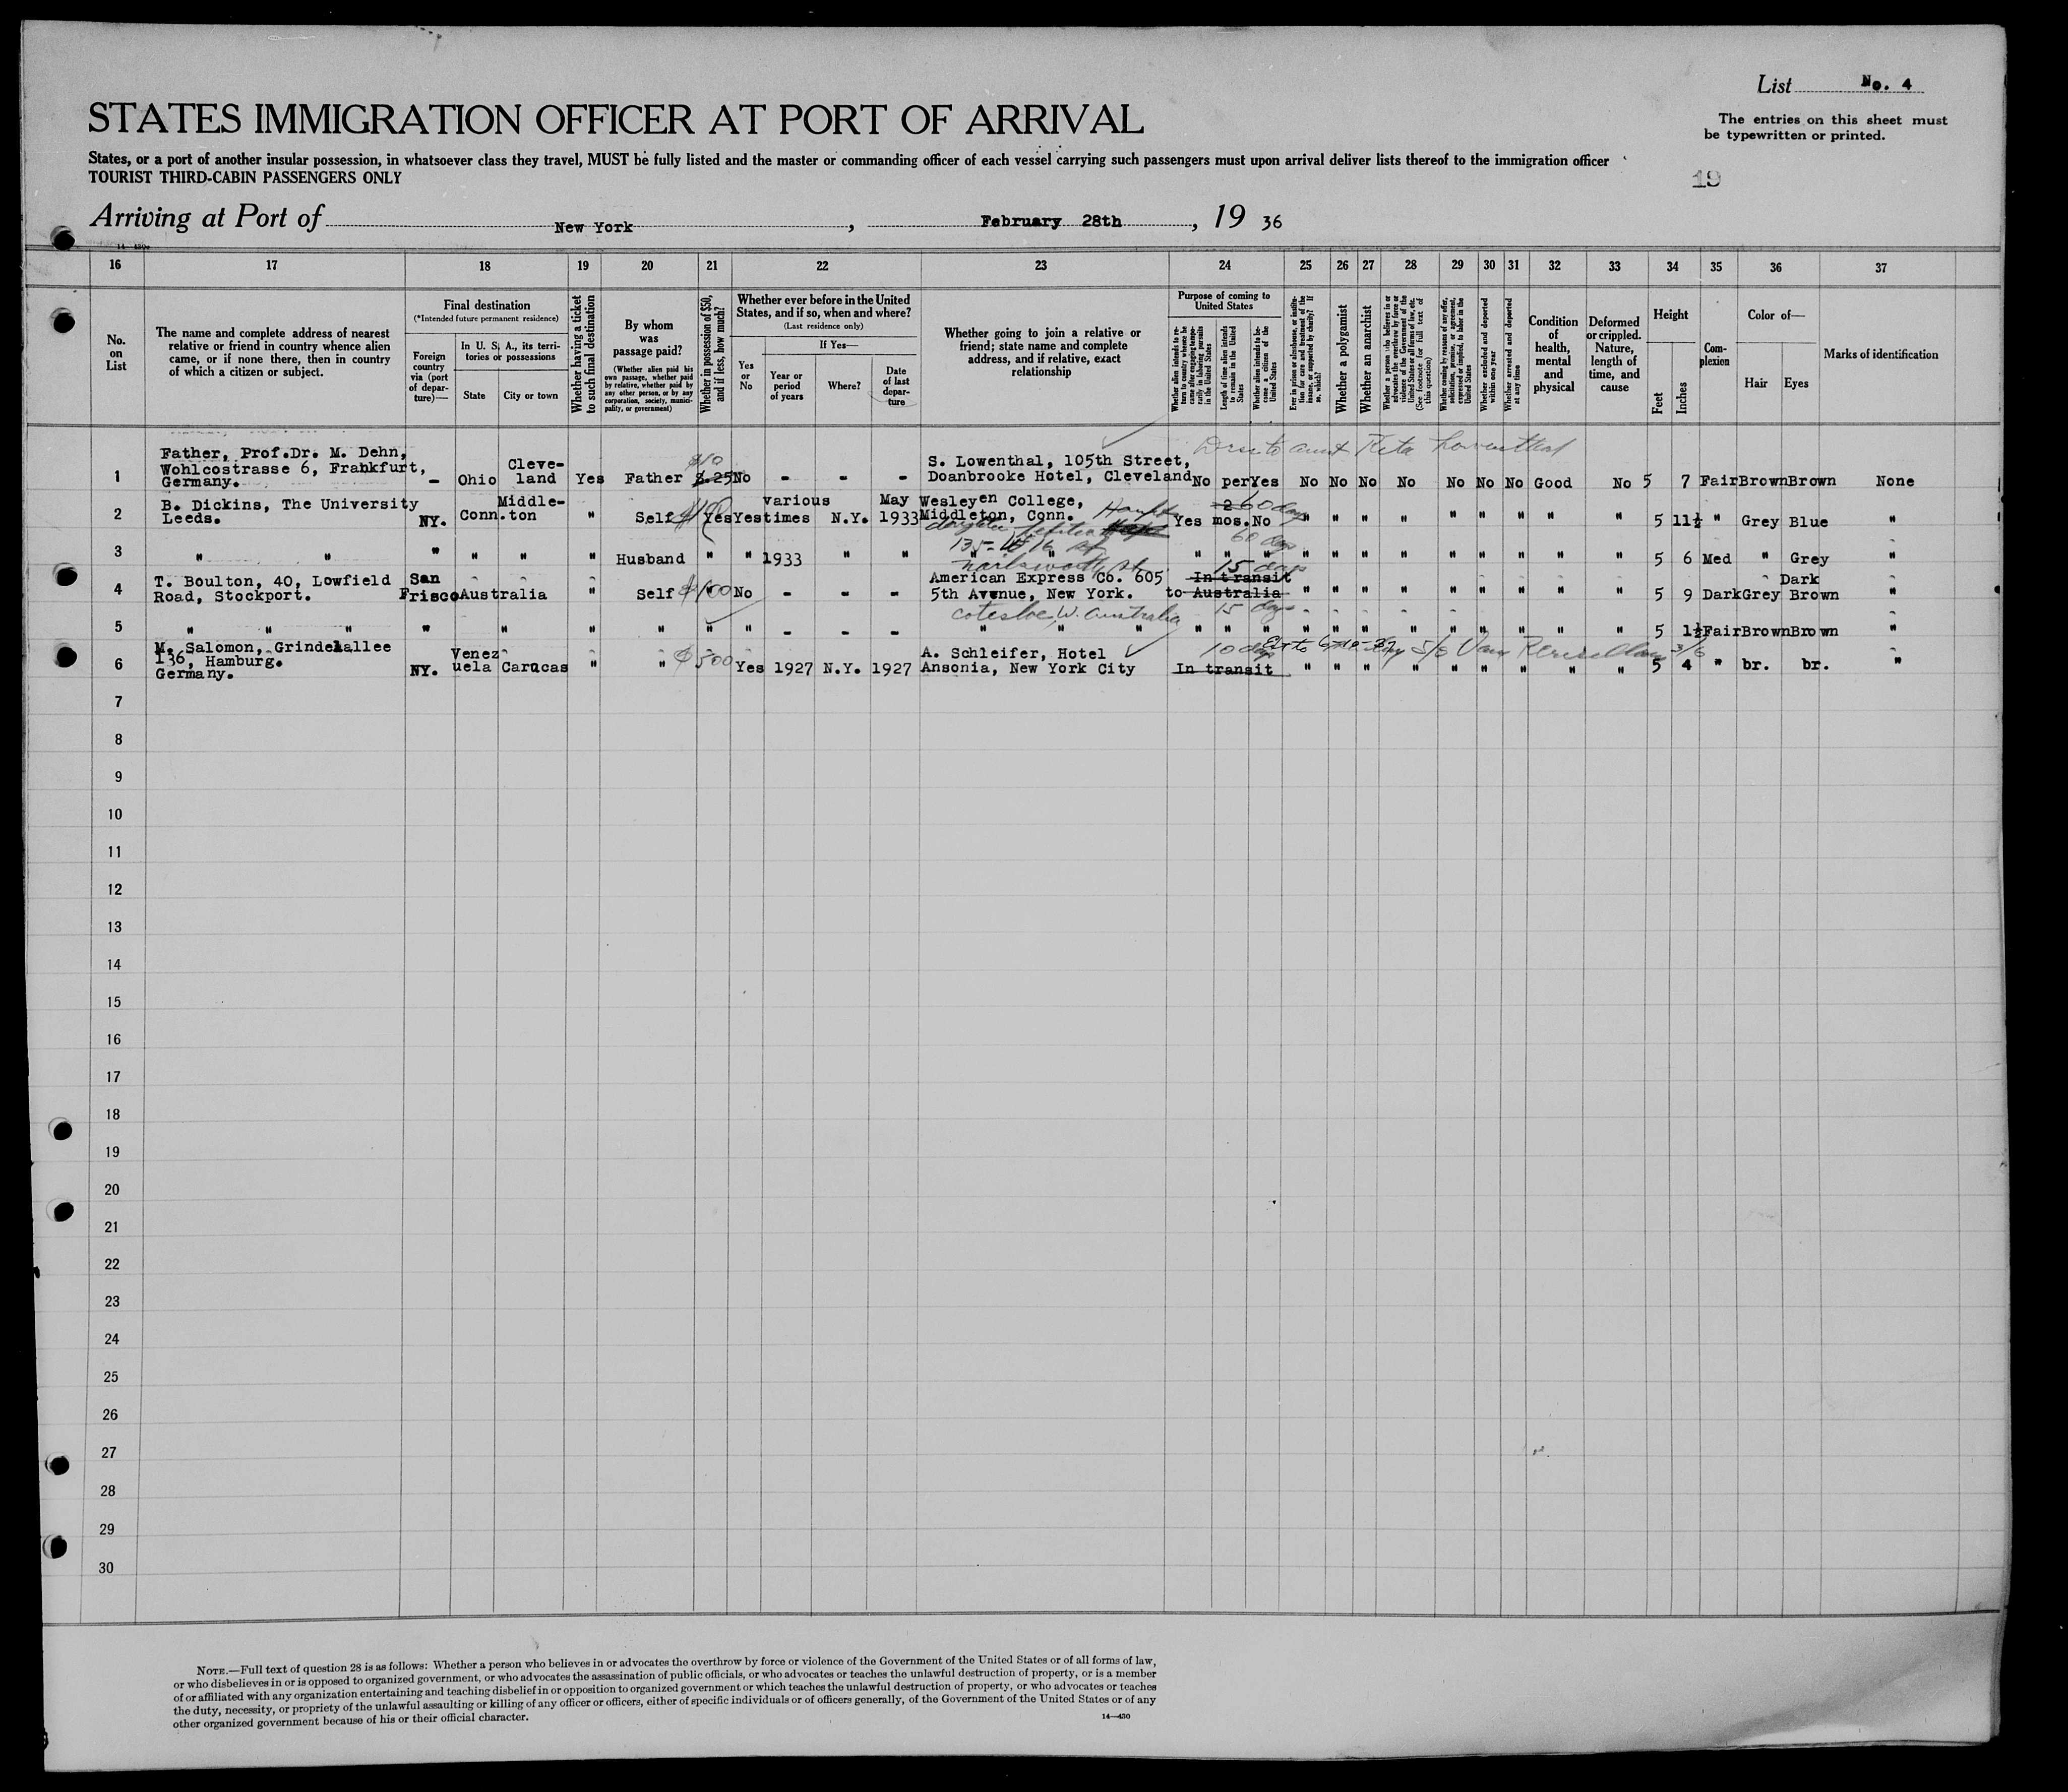 List No. 4
STATES IMMIGRATION OFFICER AT PORT OF ARRIVAL
The entries on this sheet must
be typewritten or printed.
States, or a port of another insular possession, in whatsoever class they travel, MUST be fully listed and the master or commanding officer of each vessel carrying such passengers must upon arrival deliver lists thereof to the immigration officer
TOURIST THIRD-CABIN PASSENGERS ONLY
19
Arriving at Port of New York, February 28th, 19 36
16 17 18 19 20 21 22 23 24 25 26 27 28 29 30 31 32 33 34 35 36 37
No. on List
The name and complete address of nearest relative or friend in country whence alien came, or if none there, then in country of which a citizen or subject.
Final destination
(*Intended future permanent residence)
Foreign country via (port of departure)—
In U. S. A., its territories or possessions
State
City or town
Whether having a ticket to such final destination
By whom was passage paid?
(Whether alien paid his own passage, whether paid by relative, whether paid by any other person, or by any corporation, society, municipality, or government)
Whether in possession of $50, and if less, how much?
Whether ever before in the United States, and if so, when and where?
(Last residence only)
Yes or No
If Yes—
Year or period of years
Where?
Date of last departure
Whether going to join a relative or friend; state name and complete address, and if relative, exact relationship
Purpose of coming to United States
Whether alien intends to return to country whence he came after engaging temporarily in laboring pursuits in the United States
Length of time alien intends to remain in the United States
Whether alien intends to become a citizen of the United States
Ever in prison or almshouse, or institution for care and treatment of the insane, or supported by charity? If so, which?
Whether a polygamist
Whether an anarchist
Whether a person who believes in or advocates the overthrow by force or violence of the Government of the United States or all forms of law, etc. (See footnote for full text of this question)
Whether coming by reason of any offer, solicitation, promise, or agreement, expressed or implied, to labor in the United States
Whether excluded and deported within one year
Whether arrested and deported at any time
Condition of health, mental and physical
Deformed or crippled. Nature, length of time, and cause
Height
Feet
Inches
Complexion
Color of—
Hair
Eyes
Marks of identification
aunt Rita Lowenthal
1 Father, Prof.Dr. M. Dehn, Wohlcostrasse 6, Frankfurt, Germany. - Ohio Cleve-land Yes Father $10 $.25 No - - - S. Lowenthal, 105th Street, Doanbrooke Hotel, Cleveland No per Yes No No No No No No No Good No 5 7 Fair Brown Brown None
2 B. Dickins, The University Leeds. NY. Conn. Middle-ton " Self Yes Yes various times N.Y. May 1933 Wesleyen College, Middleton, Conn. Yes 2 mos. 60 days No " " " " " " " " " 5 11½ " Grey Blue "
daughter
3 " " " " " " Husband " " 1933 " " " " " " " " " " " " " " " " " 5 6 Med " Grey "
60 days
135-
4 T. Boulton, 40, Lowfield Road, Stockport. San Frisco Australia " Self $100 No - - - American Express Co. 605 5th Avenue, New York. In transit to Australia 15 days " " " " " " " " " 5 9 Dark Grey Dark Brown "
cotesloe, W. Australia 15 days
5 " " " " " " " " " - - - " " " " " " " " " " " " " " " " 5 1½ Fair Brown Brown "
6 M. Salomon, Grindelallee 136, Hamburg. Germany. NY. Venezuela Caracas " " $500 Yes 1927 N.Y. 1927 A. Schleifer, Hotel Ansonia, New York City In transit 10 days " " " " " " " " " 5 4 " br. br. "
7
8
9
10
11
12
13
14
15
16
17
18
19
20
21
22
23
24
25
26
27
28
29
30
NOTE.—Full text of question 28 is as follows: Whether a person who believes in or advocates the overthrow by force or violence of the Government of the United States or of all forms of law,
or who disbelieves in or is opposed to organized government, or who advocates the assassination of public officials, or who advocates or teaches the unlawful destruction of property, or is a member
of or affiliated with any organization entertaining and teaching disbelief in or opposition to organized government or which teaches the unlawful destruction of property, or who advocates or teaches
the duty, necessity, or propriety of the unlawful assaulting or killing of any officer or officers, either of specific individuals or of officers generally, of the Government of the United States or of any
other organized government because of his or their official character.
14—430